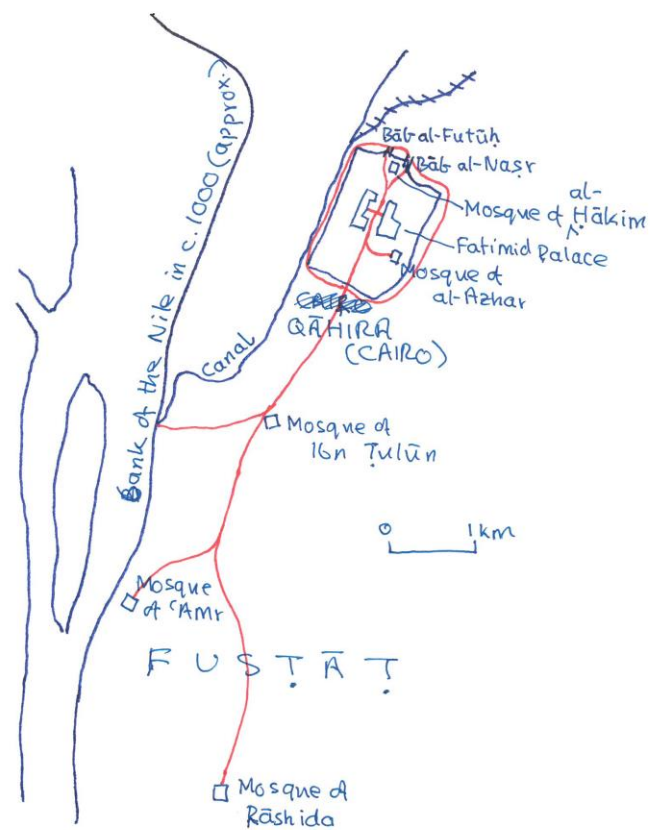 Bank of the Nile in c.1000 (approx.)
Canal
Bāb al-Futūḥ
Bāb al-Naṣr
al-
Mosque of Ḥākim
Fatimid Palace
Mosque of
al-Azhar
QĀHIRA
(CAIRO)
Mosque of
Ibn Ṭulūn
0 1km
Mosque
of ʿAmr
FUSṬĀṬ
Mosque of
Rāshida